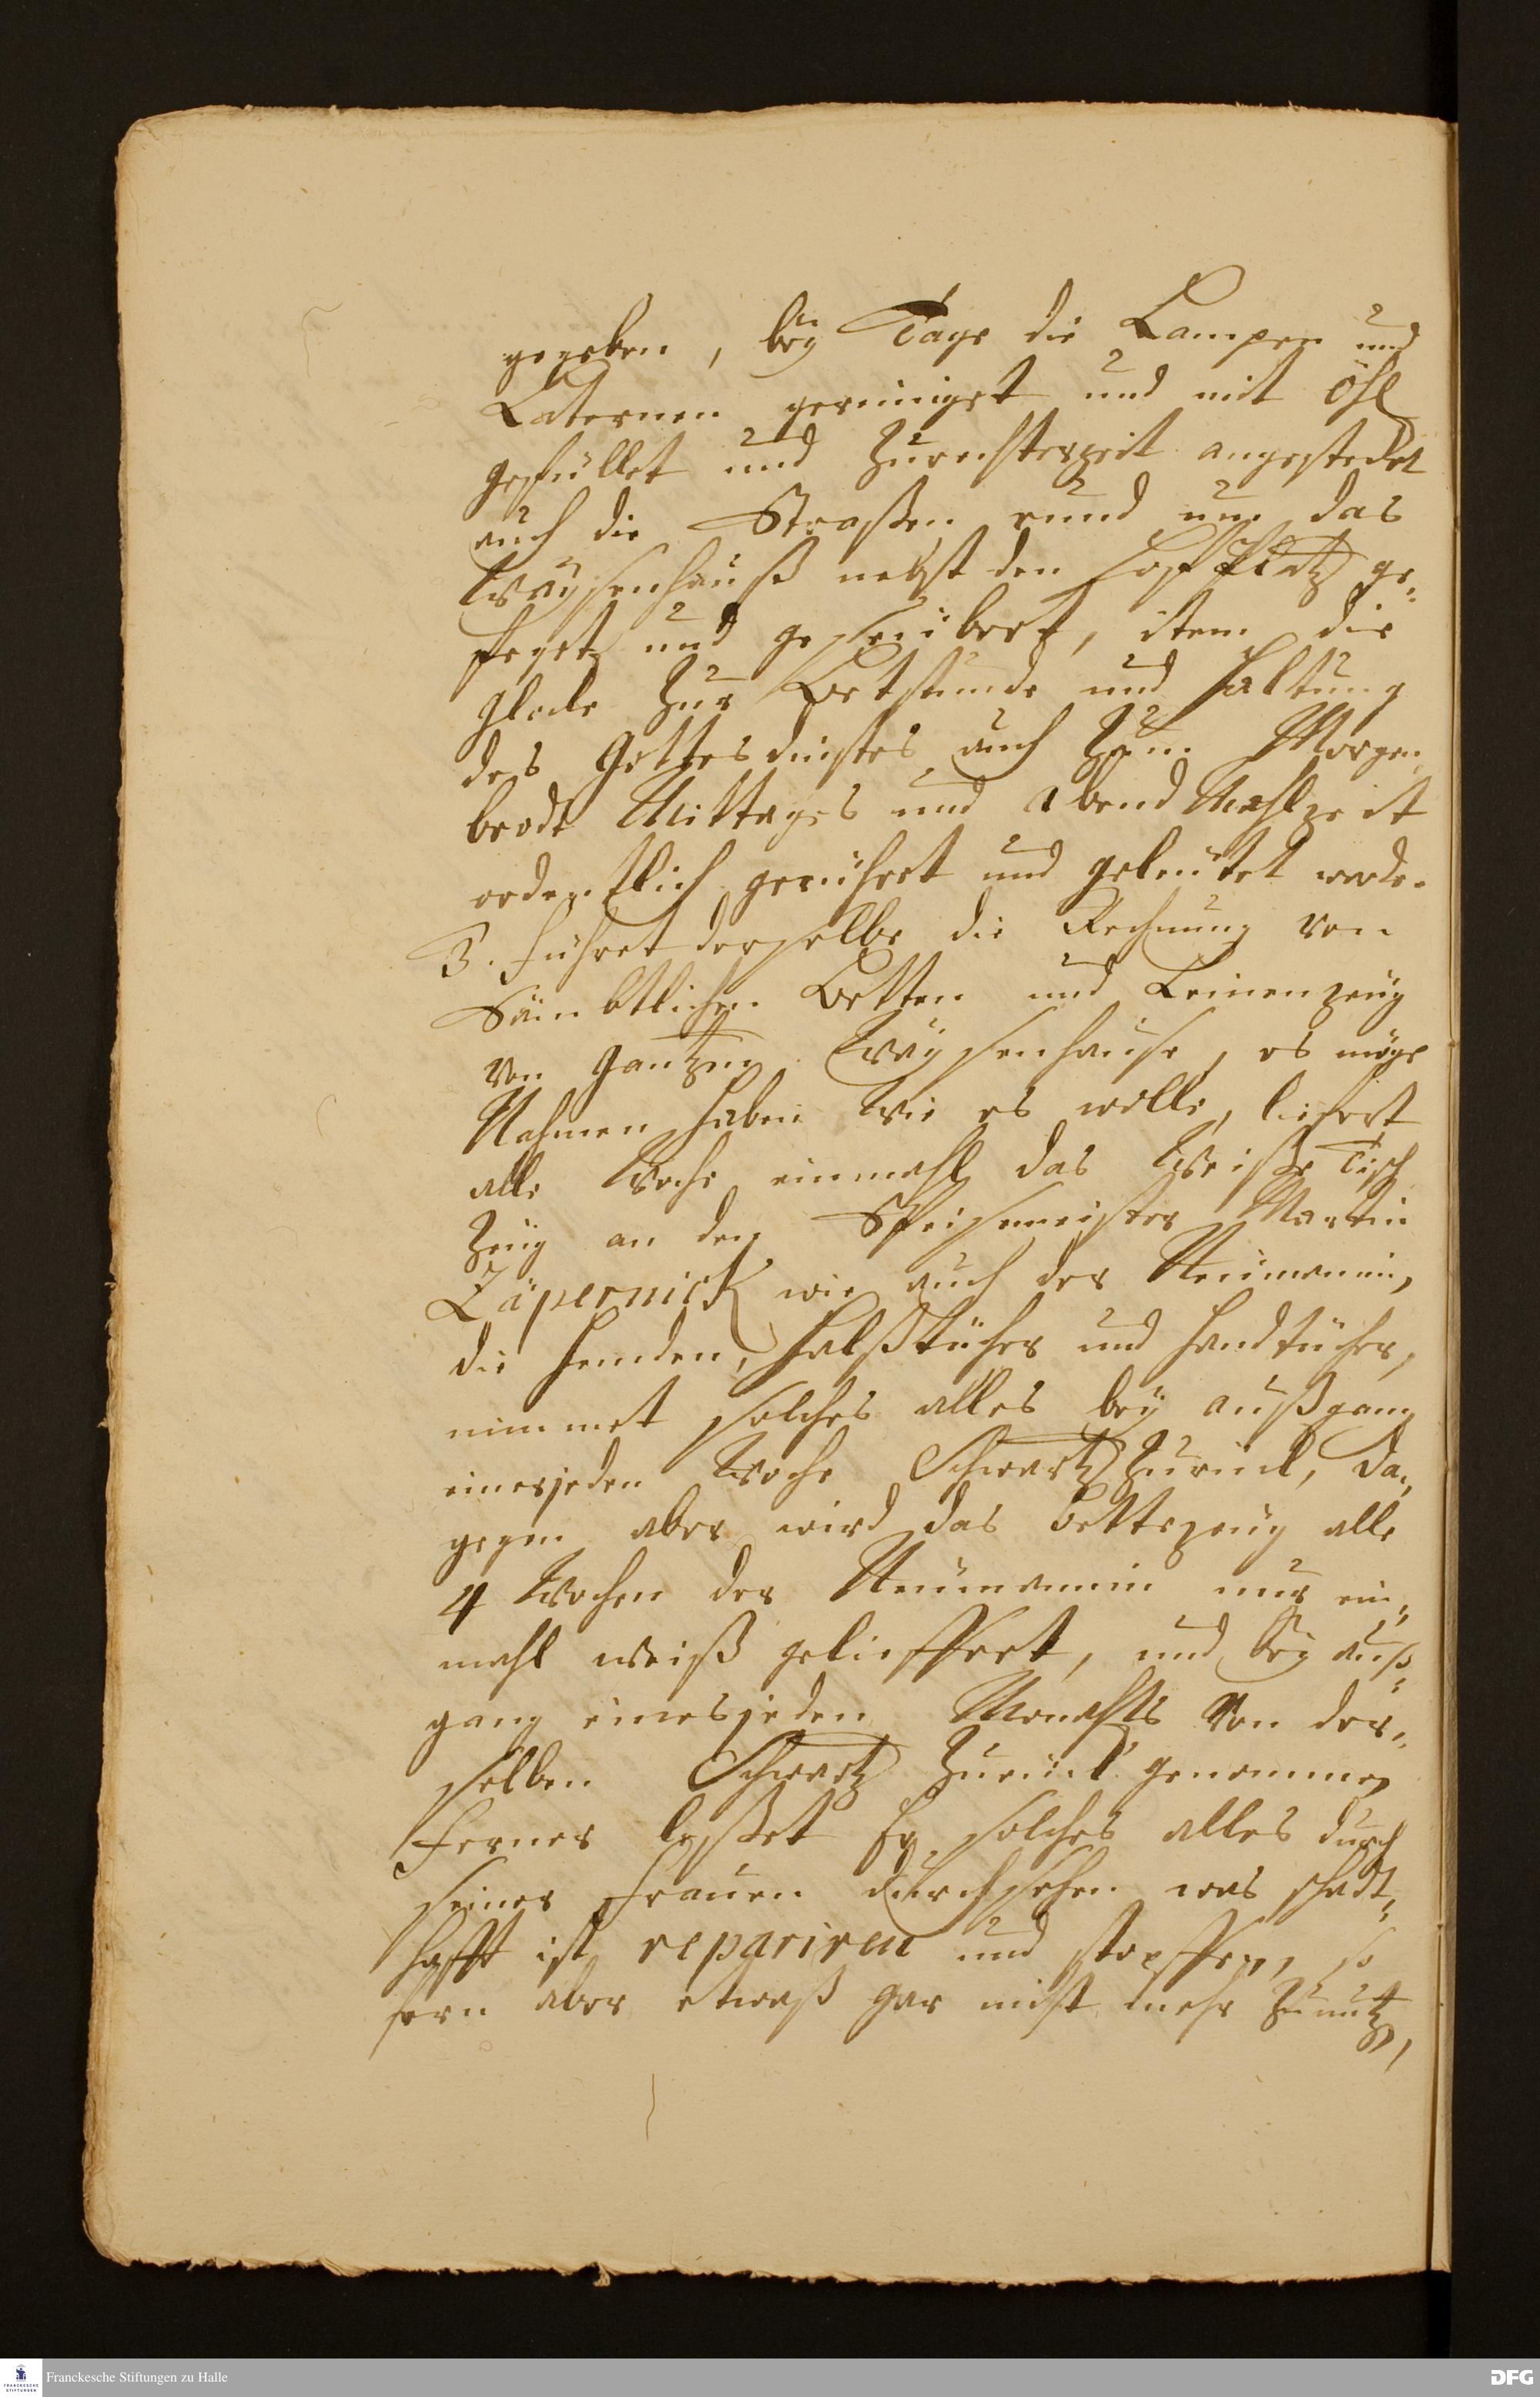 gegeben, beÿ Tage die Lampen und
Laternen gereiniget und mit Öhl
gefüllet und zurechterzeit angestecket
auch die Straßen rund um das
Waÿsenhauß nebst den Hoff Platz ge-
feget und gesäubert, item die
Glocke zur Betstunde und Haltung
des Gottesdinstes auch zum Morgen
brodt Mittages und Abend Mahlzeit
ordentlich gerühret und geleutet werde.
3. Führet derselbe die Rechnung von
Sämbtlichen Betten und Leinenzeug
von gantzen Waÿsenhause, es möge
Nahmen haben wie es wolle, liefert
alle Woche einmahl das Weiße Tisch
Zeug an den Speisemeister Martin
Zäpernick wie auch der Neumannin,
die Hemden, Halßtücher und Handtücher,
nimmet solches alles beÿ außgang
einerjeden Woche Schwartz zurück, da-
gegen aber wird das Bettezeug alle
4 Wochen der Neumannin nur ein-
mahl weiß gelieffert, und beÿ auß-
gang einesjeden Monahts von der-
selben Schwartz zurück genommen
Ferner lässet Er solches alles durch
seiner Frauen durchsehen was schadt-
hafft ist repariren und stopffen, so
fern aber etwaß gar nicht mehr zunutz,
Franckesche Stiftungen zu Halle
DFG